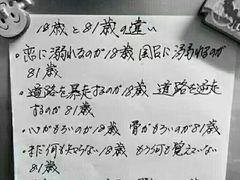 18歳と81歳の違い
・恋に溺れるのが18歳 風呂に溺れるのが
81歳
・道路を暴走するのが18歳 道路を逆走
するのが81歳
・心がもろいのが18歳 骨がもろいのが81歳
・まだ何も知らない18歳 もう何も覚えていない
81歳